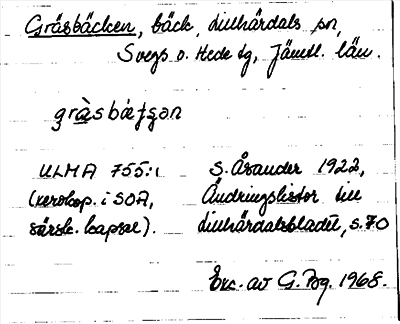 Gräsbäcken, bäck, Lillhärdals sn,
Svegs o. Hede dg, Jämtl. län.
ULMA 755:1
(xerokop. i SOA,
särsk. kapsel).
S. Åsander 1922,
Ändringslistor till
Lillhärdalsbladet, s. 70
Exc. av G. Bg. 1968.